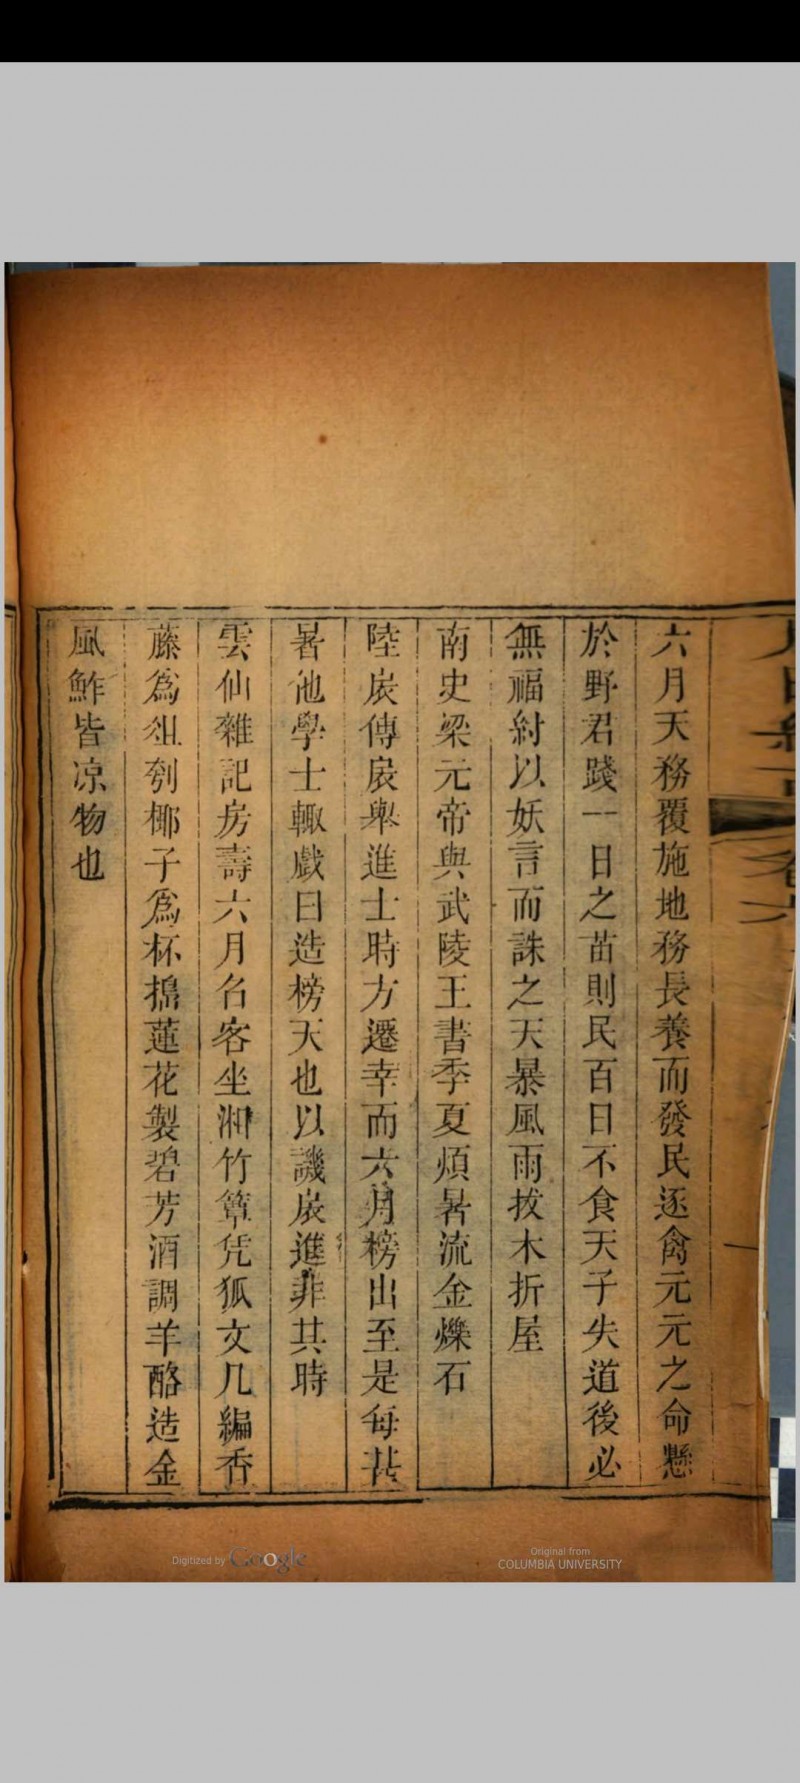 六月天務覆施地務長養而發民逐禽元元之命懸
於野君踐一日之苗則民百日不食天子失道後必
無福紂以妖言而誅之天暴風雨拔木折屋
南史梁元帝與武陵王書季夏煩暑流金爍石
陸扆傳扆舉進士時方遷幸而六月榜出至是每甚
暑他學士輒戲曰造榜天也以譏扆進非其時
雲仙雜記房壽六月召客坐湘竹簟凭狐文几編香
藤為俎刳椰子為杯搗蓮花製碧芳酒調羊酪造金
風鮓皆凉物也
Digitized by Google
Original from
COLUMBIA UNIVERSITY